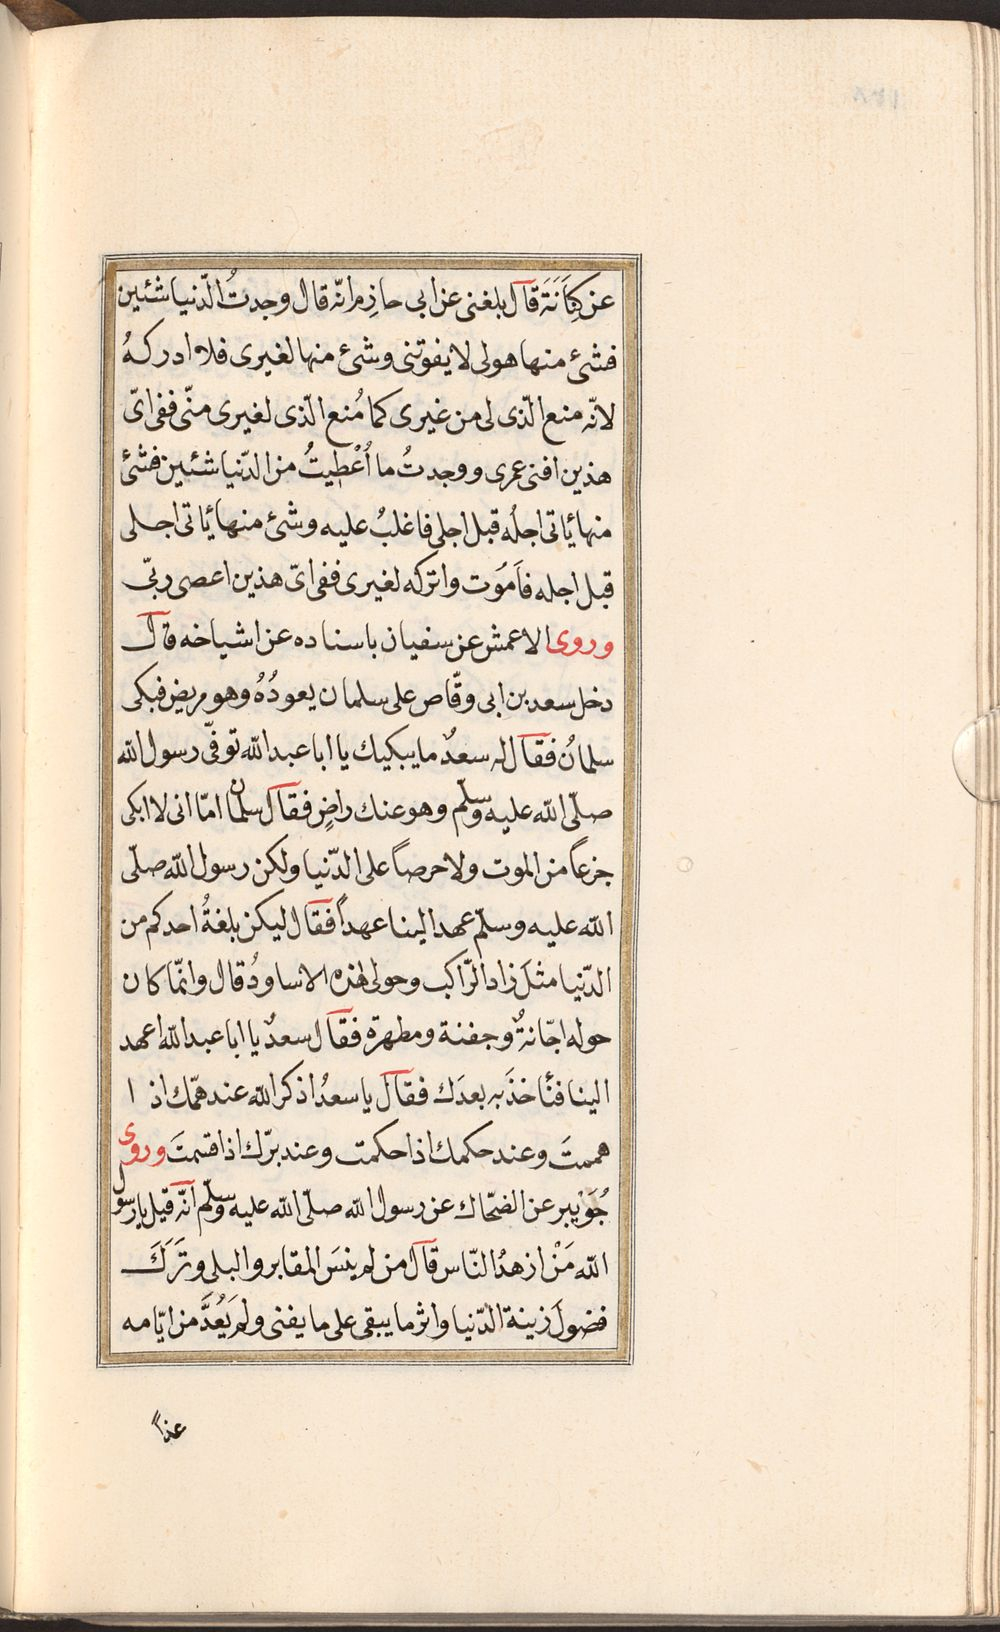 عن كِنَانَةَ قال بلغنى عن ابى حازم انّه قال وجدتُ الدّنيا شئين
فشئ منها هو لى لا يفوتنى وشئ منها لغيرى فلا ادركهُ
لانّه منع الّذى لى من غيرى كما مُنع الّذى لغيرى منّى ففى اىّ
هذين افنى عمرى ووجدتُ ما اُعْطِيتُ من الدّنيا شئين فشئ
منها ياتى اجلُه قبل اجلى فاغلبُ عليه وشئ منها ياتى اجلى
قبل اجله فاَمَوت واتركه لغيرى ففى اىّ هذين اعصى ربّى
وروى الاعمش عن سفيان باسناده عن اشياخه قال
دخل سعد بن ابى وقّاص على سلمان يعودُهُ وهو مريض فبكى
سلمانُ فقال له سعدٌ ما يبكيك يا ابا عبد الله توفّى رسول الله
صلّى الله عليه وسلّم وهو عنك راضٍ فقال سلمان امّا انى لا ابكى
جزعاً من الموت ولا حرصاً على الدّنيا ولكن رسول الله صلّى
الله عليه وسلّم عهد الينا عهداً فقال ليكن بلغةُ احدكم من
الدّنيا مثلَ زاد الرّاكب وحولى هٰذه الاساودُ قال وانّما كان
حوله اجّانةٌ وجفنة ومطهرة فقال سعدٌ يا ابا عبد الله اعهد
الينا فنأخذَ به بعدَك فقال يا سعدُ اذكر الله عند همّك اذا
هممتَ وعند حكمك اذا حكمت وعند برّك اذا اقسمتَ وروى
جُوَيبر عن الضحّاك عن رسول الله صلّى الله عليه وسلّم انّه قيل يا رسول
الله مَنْ ازهدُ النّاس قال من لم ينسَ المقابر والبلى وتَرَكَ
فضولَ زينة الدّنيا واثر ما يبقى على ما يفنى ولم يَعُدَّ من ايّامه
غداً